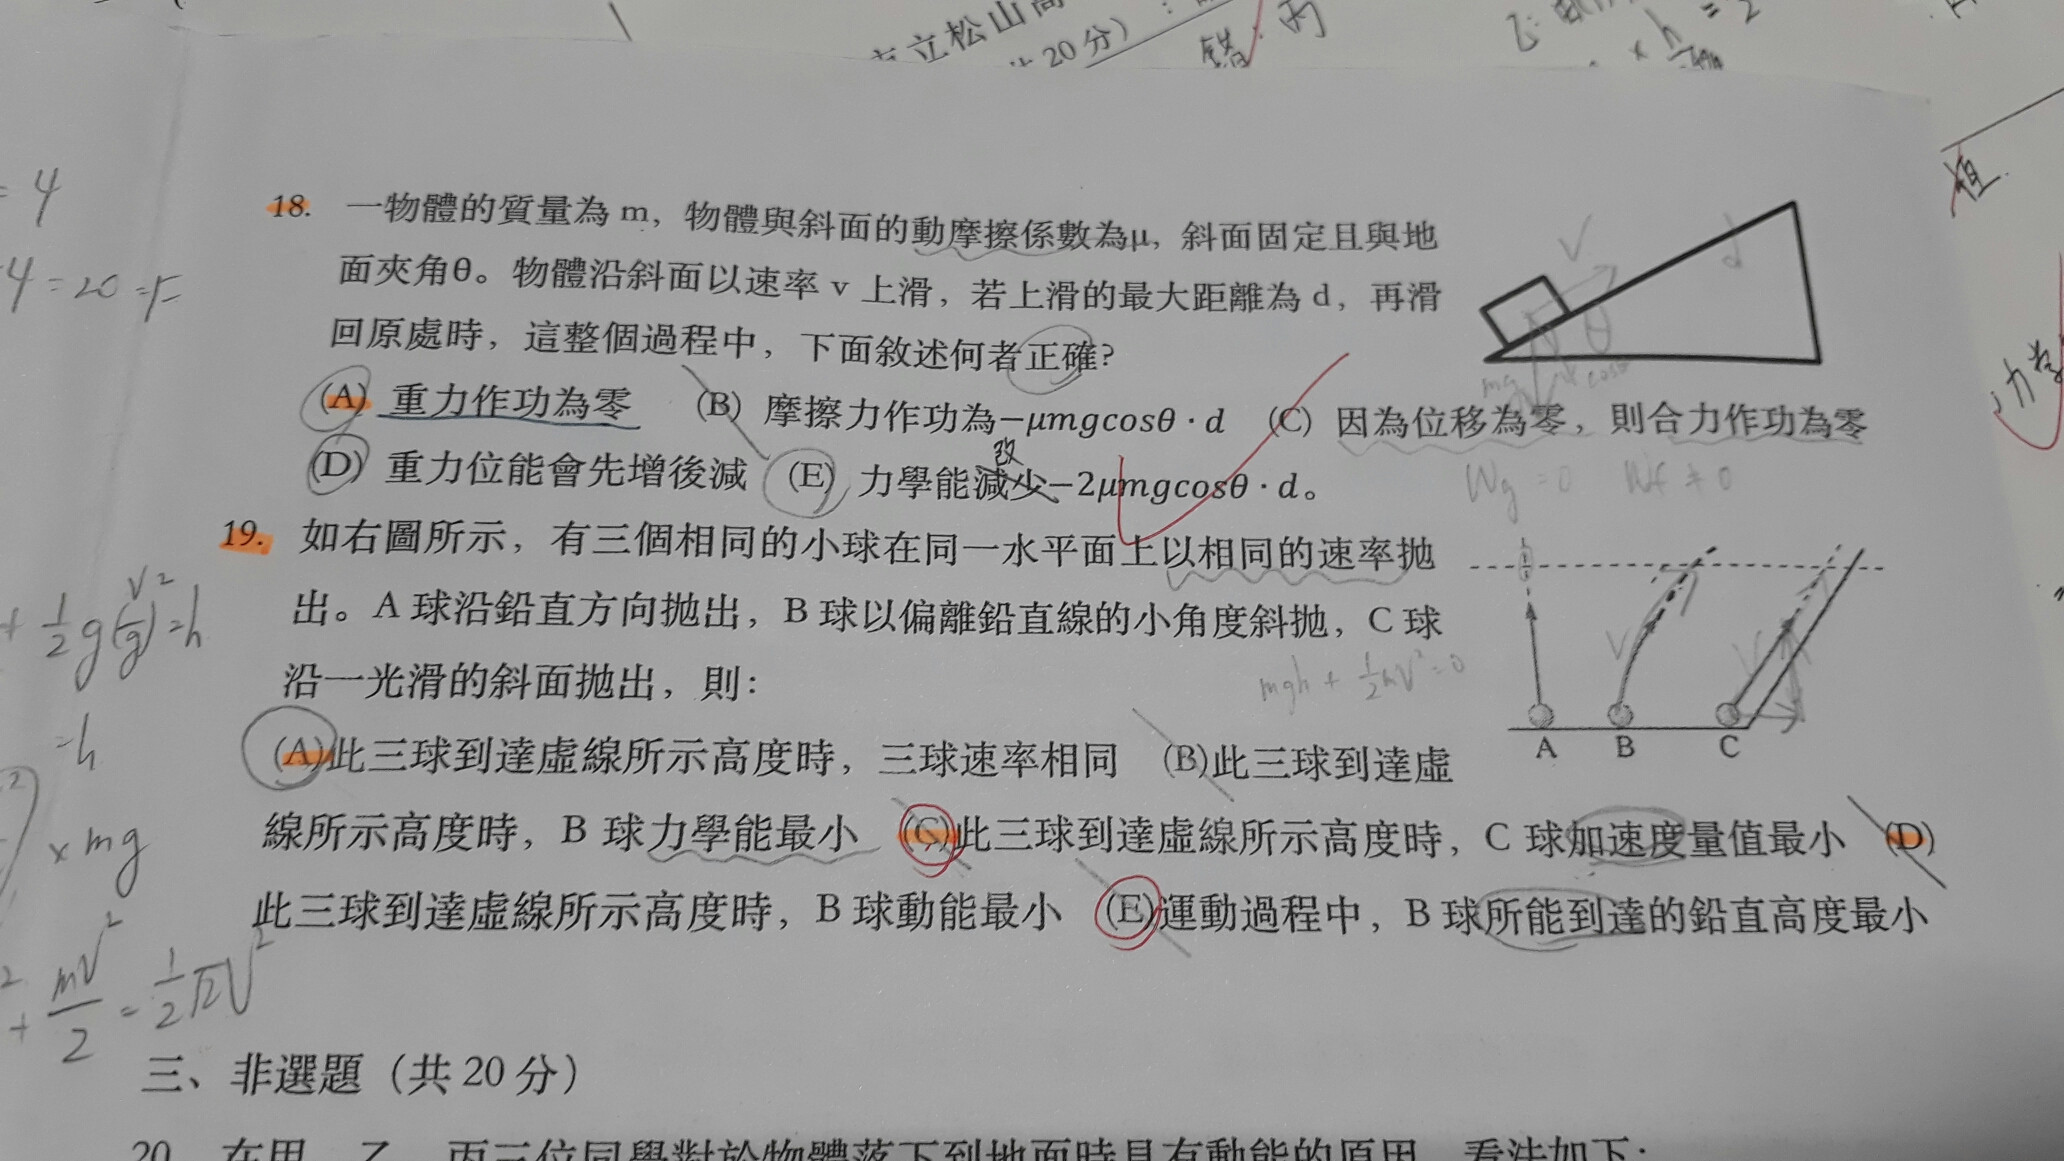 市立松山高
共 20 分）
錯：丙
= 4
4 = 20 = F
18. 一物體的質量為 m，物體與斜面的動摩擦係數為μ，斜面固定且與地
面夾角θ。物體沿斜面以速率 v 上滑，若上滑的最大距離為 d，再滑
回原處時，這整個過程中，下面敘述何者正確?
v
d
θ
mg
cosθ
(A) 重力作功為零 (B) 摩擦力作功為−μmgcosθ · d (C) 因為位移為零，則合力作功為零
改
(D) 重力位能會先增後減 (E) 力學能減少−2μmgcosθ · d。
Wg = 0 Wf ≠ 0
19. 如右圖所示，有三個相同的小球在同一水平面上以相同的速率拋
出。A 球沿鉛直方向拋出，B 球以偏離鉛直線的小角度斜拋，C 球
沿一光滑的斜面拋出，則：
mgh + 1/2 mV² = 0
V
V
A B C
(A)此三球到達虛線所示高度時，三球速率相同 (B)此三球到達虛
線所示高度時，B 球力學能最小 (C)此三球到達虛線所示高度時，C 球加速度量值最小 (D)
此三球到達虛線所示高度時，B 球動能最小 (E)運動過程中，B 球所能到達的鉛直高度最小
+ 1/2 g(V/g)² = h
= h
× mg
+ mV²/2 = 1/2 mV²
三、非選題（共 20 分）
20. 在甲、乙、丙三位同學對於物體落下到地面時具有動能的原因，看法如下：
力學